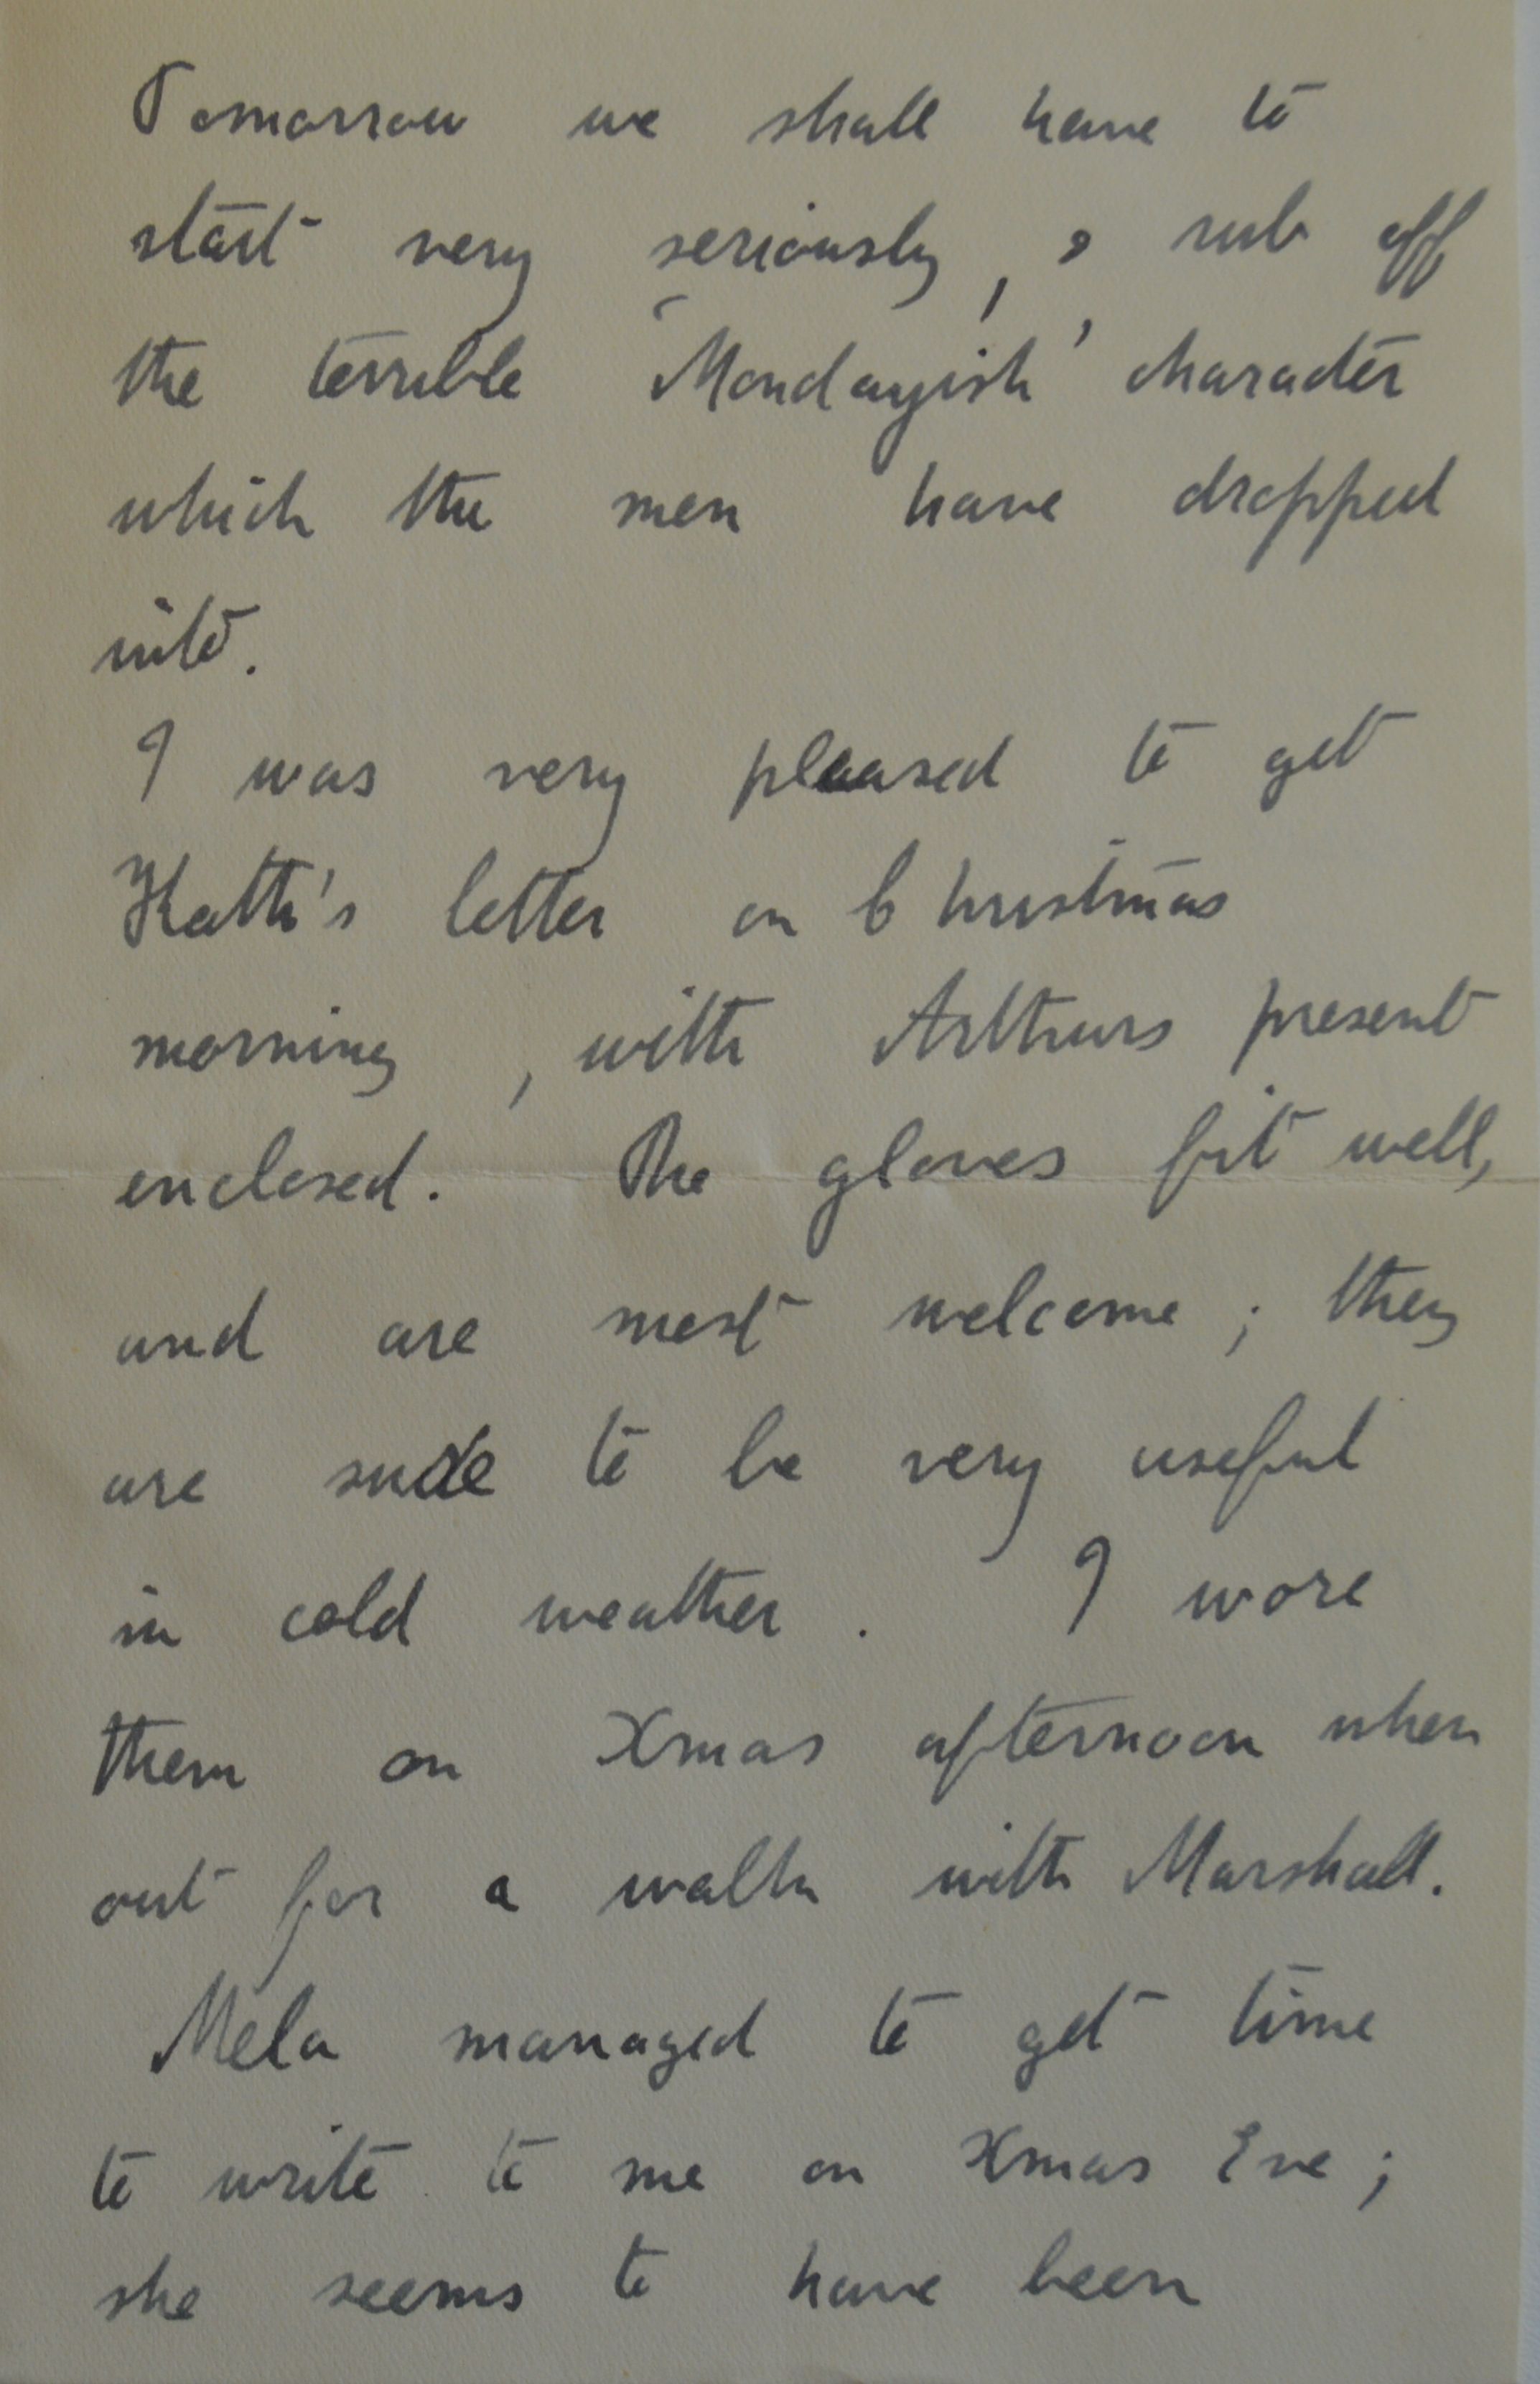 Tomorrow we shall have to
start very seriously, & rub off
the terrible 'Mondayish' character
which the men have dropped
into.
I was very pleased to get
Kath's letter on Christmas
morning, with Arthurs present
enclosed. The gloves fit well,
and are most welcome; they
are sure to be very useful
in cold weather. I wore
them on Xmas afternoon when
out for a walk with Marshall.
Mela managed to get time
to write to me on Xmas Eve;
she seems to have been